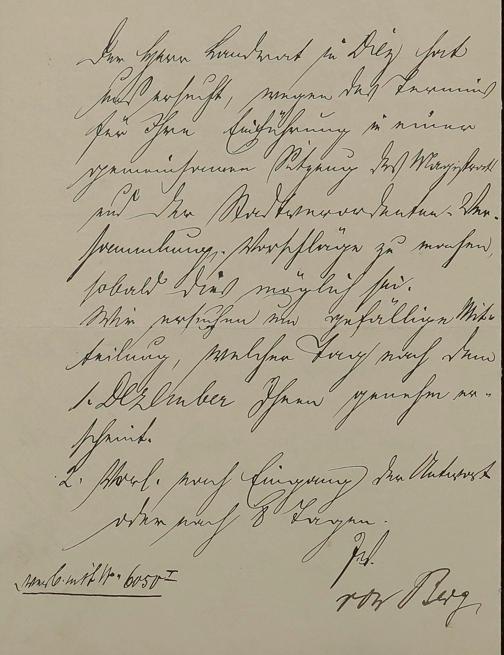 Der Herr Landrat in Diez hat
uns ersucht, wegen des Termins
für Ihre Einführung in einer
gemeinsamen Sitzung des Magistrats
und der Stadtverordneten-Ver-
sammlung, Vorschläge zu machen,
sobald dies möglich sei.
Wir ersuchen um gefällige Mit-
teilung, welcher Tag nach dem
1. Dezember Ihnen genehm er-
scheint.
2. Vorl. nach Eingang der Antwort
oder nach 8 Tagen.
von Berg
verb. mit N° 6050 I